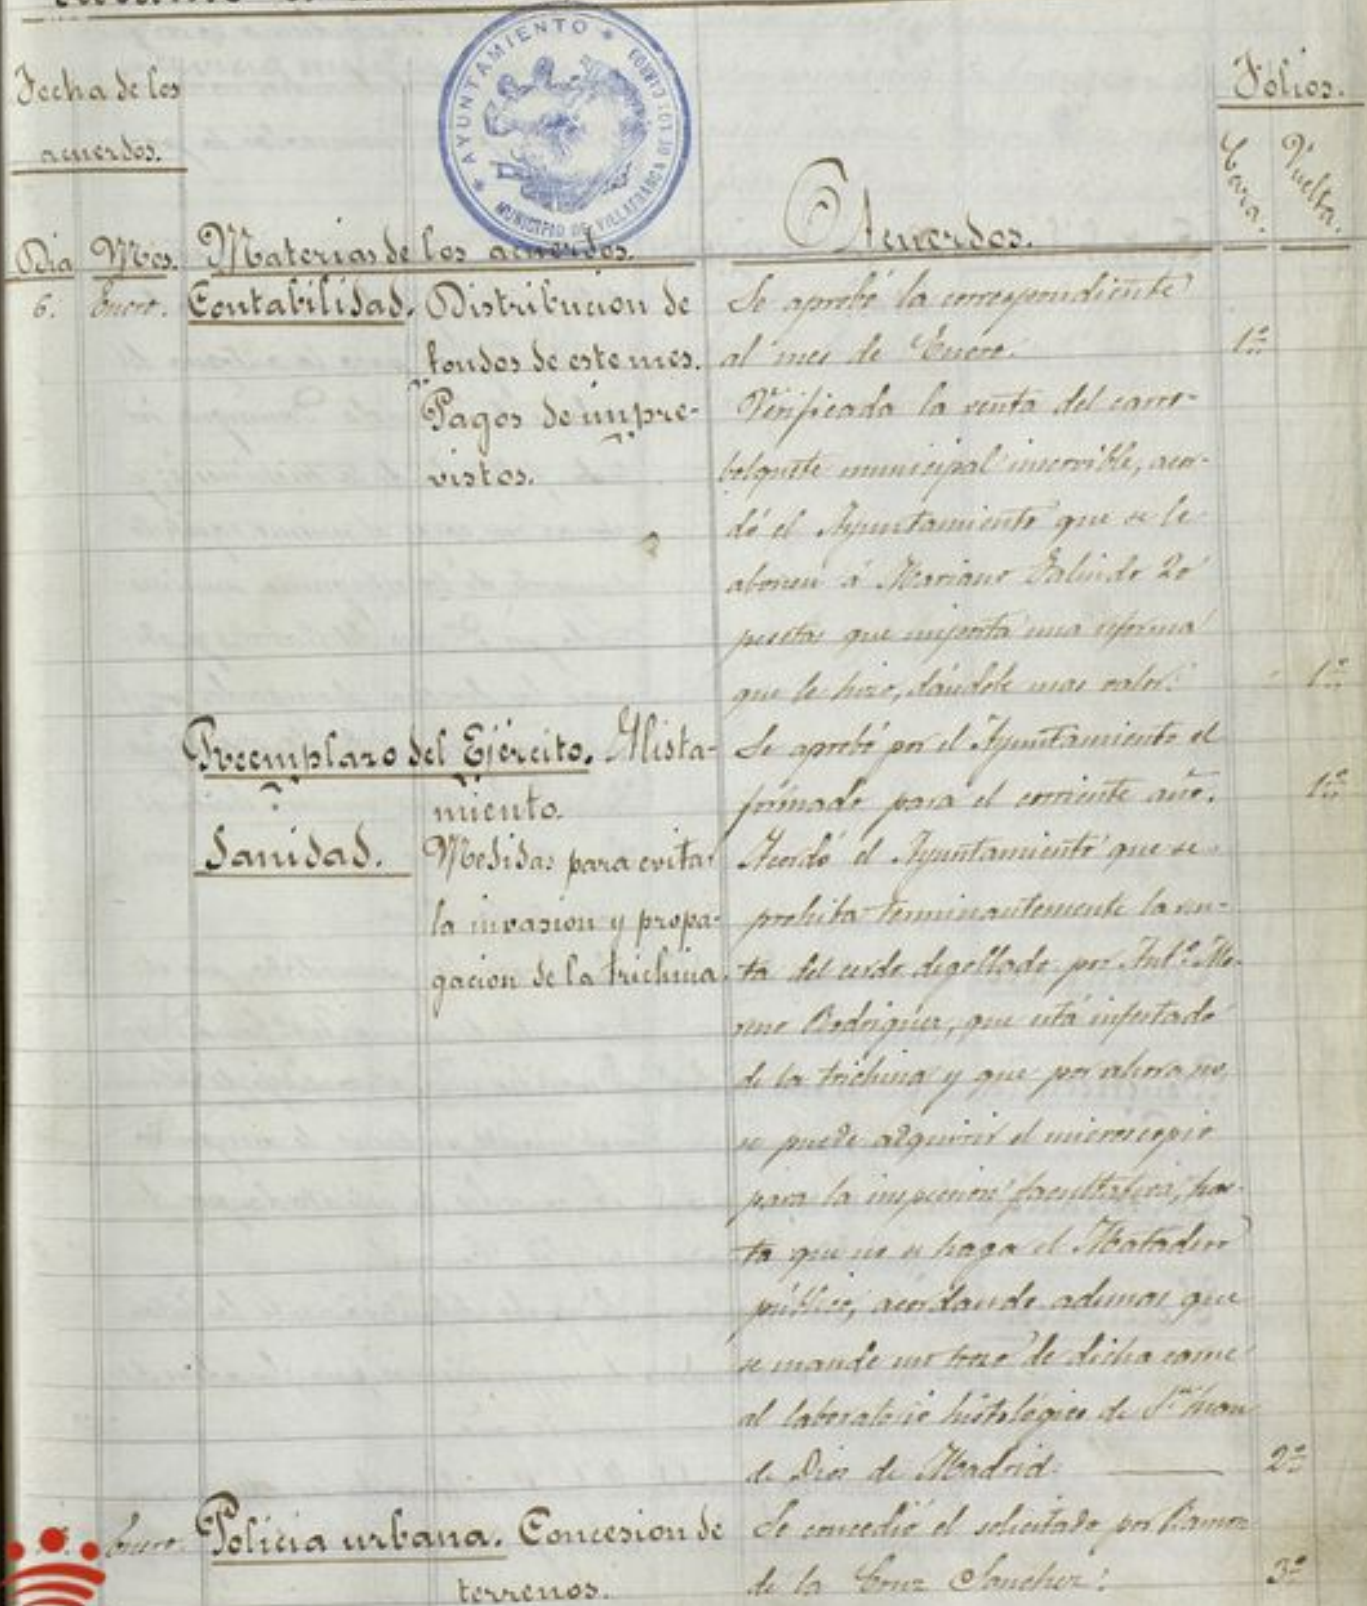 Fecha de los
acuerdos.
Folios.
Cara. Vuelta.
AYUNTAMIENTO
MUNICIPIO DE VILLAFRANCA DE LOS
Dia Mes. Materias de los acuerdos. Acuerdos.
6. Enero. Contabilidad. Distribucion de
fondos de este mes.
Se aprobó la correspondiente
al mes de Enero. 1º
Pagos de impre-
vistos.
Verificada la venta del carro-
bolquete municipal inservible, acor-
dó el Ayuntamiento que se le
abonen á Mariano Galindo 20
pesetas que importa una reforma
que le hizo, dándole mas valor. 1º
Reemplazo del Ejército. Alista-
miento.
Se aprobó por el Ayuntamiento el
formado para el corriente año. 1º
Sanidad. Medidas para evitar
la invasion y propa-
gacion de la trichina.
Acordó el Ayuntamiento que se
prohiba terminantemente la ven-
ta del cerdo degollado por Antº Mo-
reno Rodriguez, que está infestado
de la trichina y que por ahora no
se puede adquirir el microscopio
para la inspeccion facultativa, has-
ta que no se haga el Matadero
público, acordando ademas que
se mande un trozo de dicha carne
al laboratorio histológico de Sn Juan
de Dios de Madrid. 2º
Enero. Policia urbana. Concesion de
terrenos.
Se concedió el solicitado por Ramon
de la Cruz Sanchez. 3º